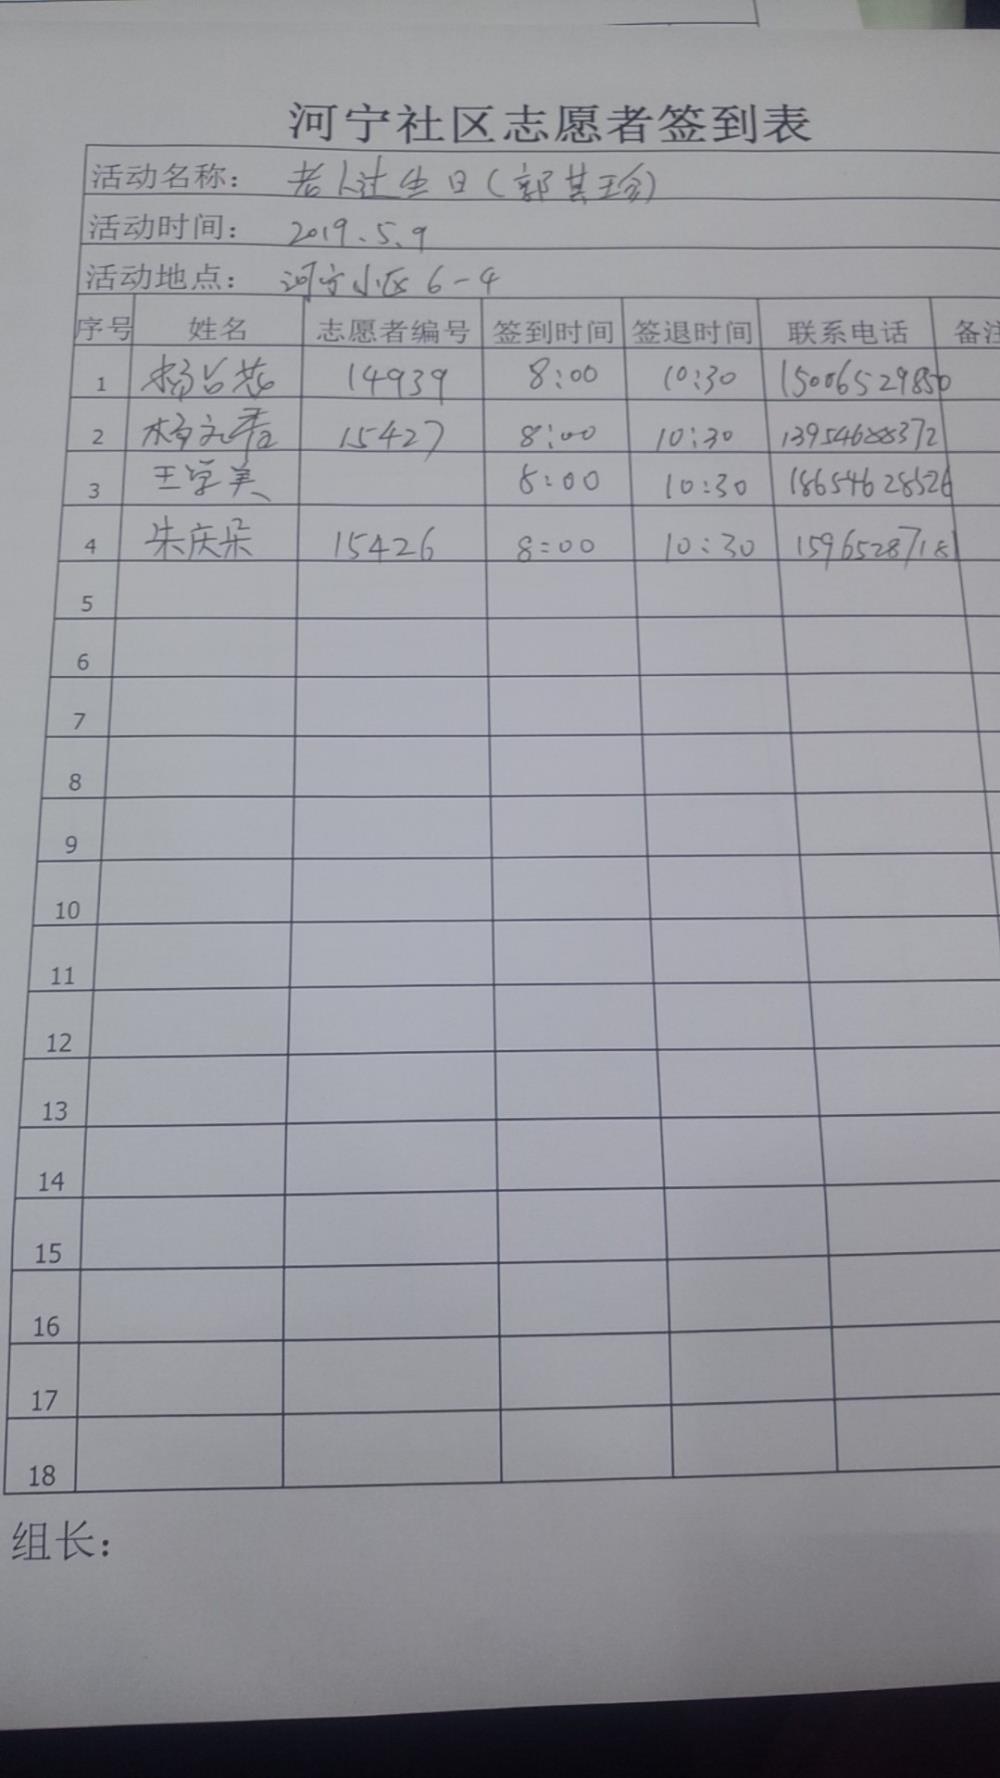 河宁社区志愿者签到表
活动名称： 老人过生日（郭其珍）
活动时间： 2019.5.9
活动地点： 河宁小区 6-4
序号 姓名 志愿者编号 签到时间 签退时间 联系电话 备注
1 14939 8:00 10:30 15006529850
2 15427 8:00 10:30 13954688372
3 王学美 8:00 10:30 18654628526
4 朱庆朵 15426 8:00 10:30 15965287181
5
6
7
8
9
10
11
12
13
14
15
16
17
18
组长：